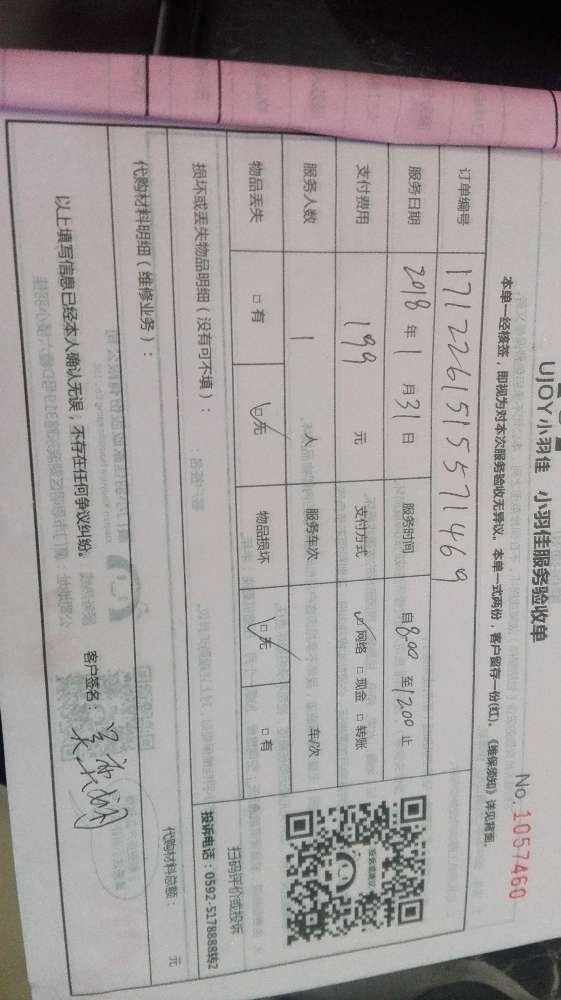 UJOY小羽佳 小羽佳服务验收单
No. 1057460
本单一经核签，即视为对本次服务验收无异议。本单一式两份，客户留存一份(红)。《维保须知》详见背面。
订单编号 171226151557 1469
服务日期 2018 年 1 月 31 日 服务时间 自 8:00 至 12:00 止
支付费用 199 元 支付方式 ☑网络 □现金 □转账
服务人数 1 人 服务车次 车/次
物品丢失 □有 ☑无 物品损坏 ☑无 □有
扫码评价或投诉
损坏或丢失物品明细（没有可不填）：
投诉电话：0592-5178888转2
代购材料明细（维修业务）：
代购材料总额： 元
以上填写信息已经本人确认无误，不存在任何争议纠纷。
客户签名：